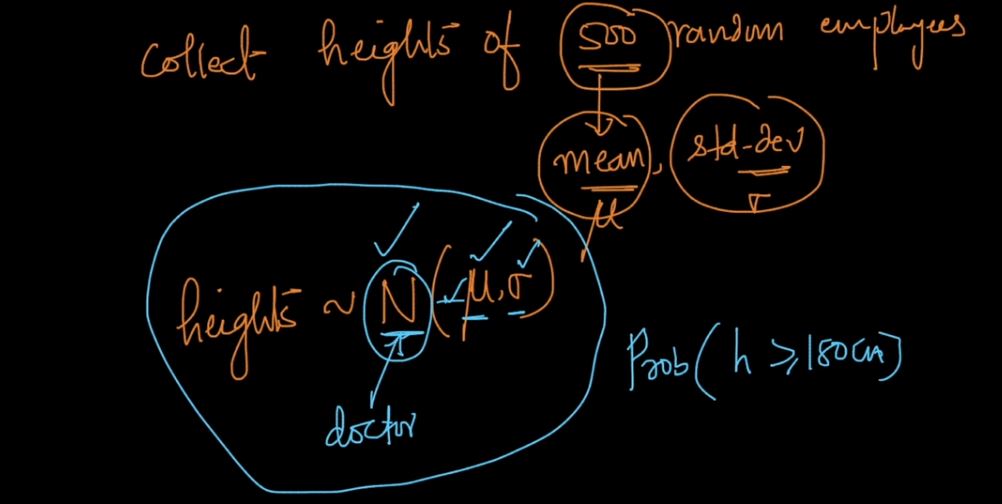 collect heights of 500 random employees
mean, std-dev
μ σ
heights ~ N(μ,σ)
Prob(h ≥ 180cm)
doctor